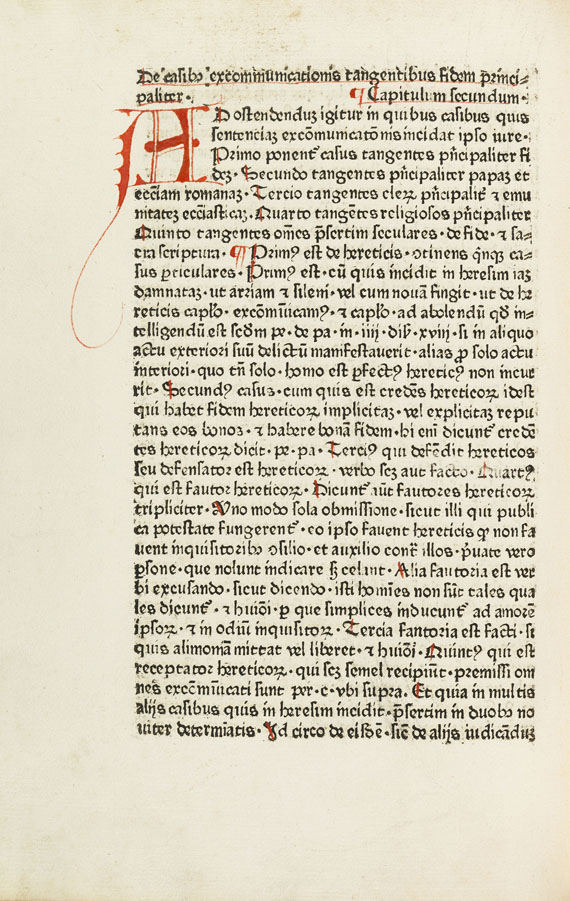 De casibꝰ excommunicationis tangentibus fidem p̄nci⸗
paliter · ¶ Capitulum secundum ·
AD ostendenduꝫ igitur in quibus casibus quis
sentenciaꝫ excōmunicatōnis incidat ipso iure ·
Primo ponent᷑ casus tangentes pn̄cipaliter fi
deꝫ · Secundo tangentes pn̄cipaliter papaꝫ et
ecc̄iam romanaꝫ · Tercio tangentes cleꝝ pn̄cipalit᷑ ⁊ emu
nitateꝫ ecc̄iasticaꝫ · Quarto tangētes religiosos pn̄cipaliter
Quinto tangentes om̄es p̄sertim seculares · de fide · ⁊ sa⸗
cra scriptura · ¶ Primꝰ est de hereticis · ↄtinens q̄nqꝫ ca⸗
sus ꝑticulares · Primꝰ est · cū quis incidit in heresim iaꝫ
damnataꝫ · ut arriam ⁊ sileni · vel cum nouā fingit · ut de he
reticis caplo · excōmūicamꝰ · ⁊ caplo · ad abolendū qd in⸗
telligendū est scdm pe · de pa · in · iiij · dis · xviij · si in aliquo
actu exteriori suū delictū manifestauerit · alias ꝓ solo actu
interiori · quo tn̄ solo · homo est ꝑfectꝰ hereticꝰ non incur
rit · Secundꝰ casus · cum quis est credēs hereticoꝝ idest
qui habet fidem hereticoꝝ implicitaꝫ · vel explicitaꝫ repu
tans eos bonos · ⁊ habere bonā fidem · hi enī dicunt᷑ credē
tes hereticoꝝ dicit · pe · pa · Terciꝰ qui defēdit hereticos
seu defensator est hereticoꝝ · verbo scꝫ aut facto · Quartꝰ
qui est fautor hereticoꝝ · Dicunt᷑ aūt fautores hereticoꝝ
tripliciter · Vno modo sola obmissione · sicut illi qui publi
ca potestate fungerent᷑ · eo ipso fauent hereticis qꝛ non fa
uent inquisitoribꝰ ↄsilio · et auxilio cont᷑ illos · p̄uate vero
ꝑsone · que nolunt indicare sꝫ celant · Alia fautoria est ver
bi excusando · sicut dicendo · isti homīes non sūt tales qua
les dicunt᷑ · ⁊ hiuōi · ꝑ que simplices inducunt᷑ ad amorē
ipsoꝝ · ⁊ in odiū inquisitoꝝ · Tercia fautoria est facti · si
quis alimoniā mittat vel liberet · ⁊ hiuōi · Quintꝰ qui est
receptator hereticoꝝ · qui scꝫ semel recipiūt · premissi om
nes excōmūicati sunt per · c · vbi supra · Et quia in multis
alijs casibus quis in heresim incidit · p̄sertim in duobꝰ no
uiter determīatis · Id circo de eisdē · sic̄ de alijs iudicāduꝫ